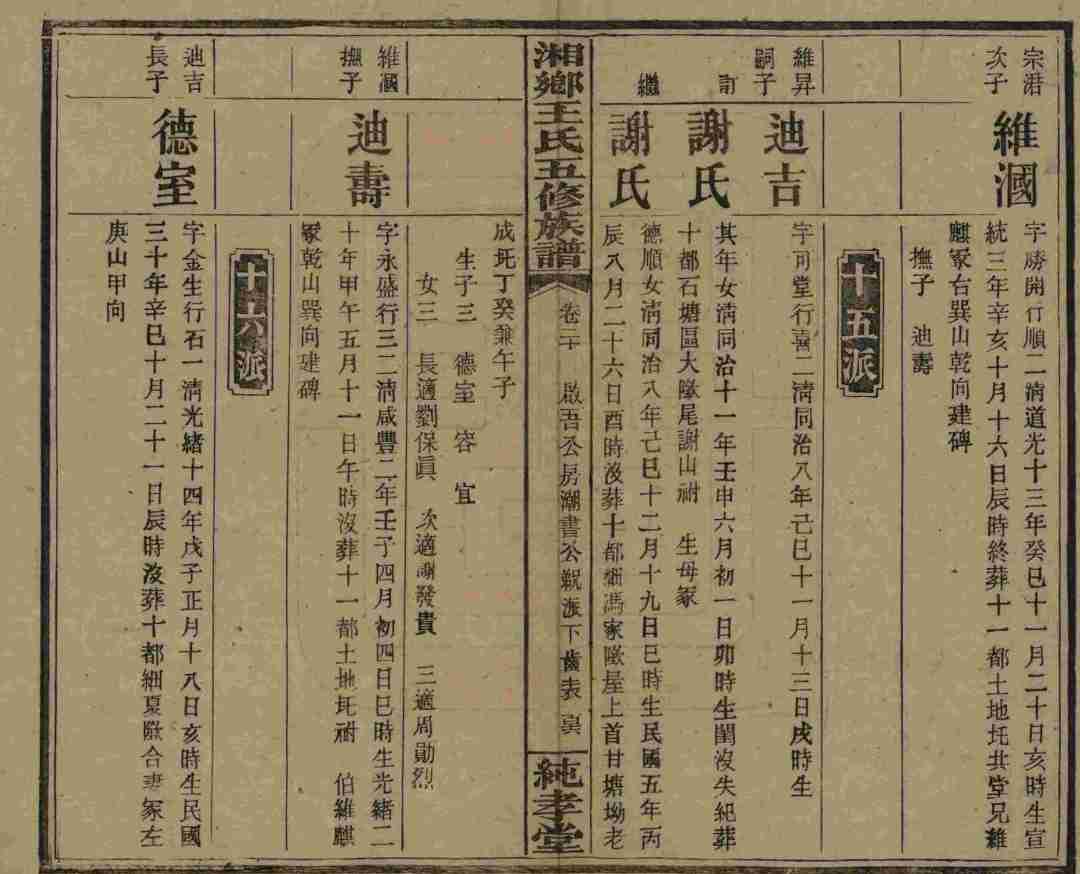 宗港
次子
維漍
字勝開行順二淸道光十三年癸巳十一月二十日亥時生宣
統三年辛亥十月十六日辰時終葬十一都土地圫共堂兄維
麒冢右巽山乾向建碑
撫子 迪壽
十五派
維昇
嗣子
迪吉
字可堂行喜二淸同治八年己巳十一月十三日戌時生
訂
謝氏
其年女淸同治十一年壬申六月初一日卯時生閨沒失紀葬
十都石塘區大墩尾謝山祔 生母冢
繼
謝氏
德順女淸同治八年己巳十二月十九日巳時生民國五年丙
辰八月二十六日酉時沒葬十都細馮家墩屋上首甘塘坳老
湘鄉王氏五修族譜
卷二十
啟吾公房潮書公派下齒表
純孝堂
成圫丁癸兼午子
生子三 德室 容 宜
女三 長適劉保眞 次適謝發貴 三適周勛烈
維漍
撫子
迪壽
字永盛行三二淸咸豐二年壬子四月初四日巳時生光緒二
十年甲午五月十一日午時沒葬十一都土地圫祔 伯維麒
冢乾山巽向建碑
十六派
迪吉
長子
德室
字金生行石一淸光緒十四年戊子正月十八日亥時生民國
三十年辛巳十月二十一日辰時沒葬十都細夏墩合妻冢左
庚山甲向